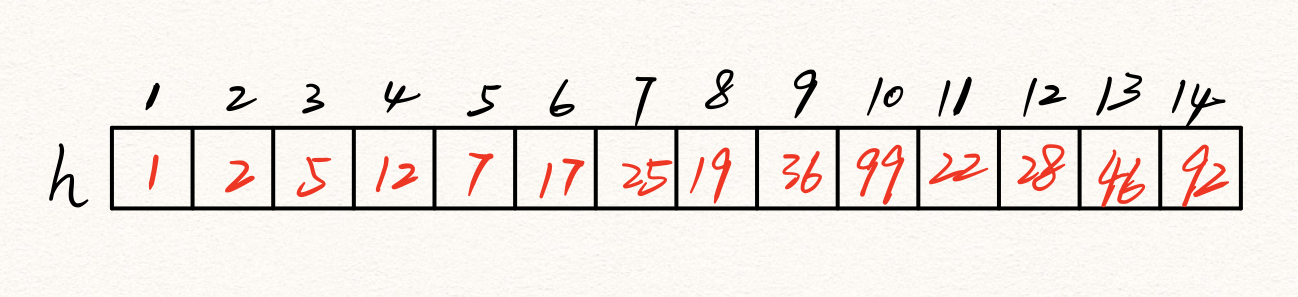 1 2 3 4 5 6 7 8 9 10 11 12 13 14
h 1 2 5 12 7 17 25 19 36 99 22 28 46 92